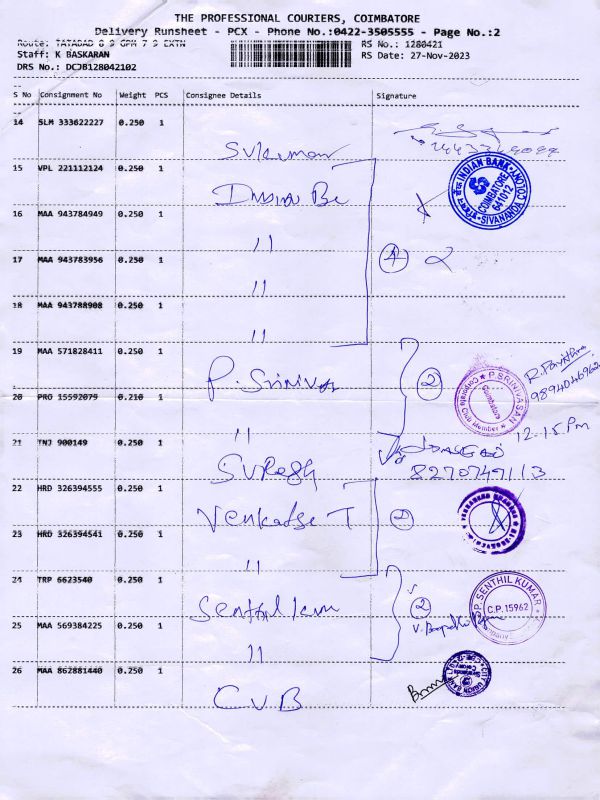 THE PROFESSIONAL COURIERS, COIMBATORE
Delivery Runsheet - PCX - Phone No.:0422-3505555 - Page No.:2
Route: TATABAD 8 9 GPM 7 9 EXTN
RS No.: 1280421
Staff: K BASKARAN
RS Date: 27-Nov-2023
DRS No.: DCJB128042102
S No Consignment No Weight PCS Consignee Details Signature
14 SLM 333622227 0.250 1
Sukumar
15 VPL 221112124 0.250 1
INDIAN BANK
COIMBATORE
641012
SIVANANDA COLONY
16 MAA 943784949 0.250 1
"
17 MAA 943783956 0.250 1
4
"
18 MAA 943788908 0.250 1
"
19 MAA 571828411 0.250 1
P. Srinivas
2
P SRINIVASAN
Coimbatore
Club Member
9894046962
20 PRO 15592079 0.210 1
"
12.15 Pm
21 TNJ 900149 0.250 1
Suresh
8270749113
22 HRD 326394555 0.250 1
Venkatse T
2
23 HRD 326394541 0.250 1
"
24 TRP 6623540 0.250 1
Senthil kum
2
P. SENTHIL KUMAR
C.P. 15962
25 MAA 569384225 0.250 1
"
26 MAA 862881440 0.250 1
C V B